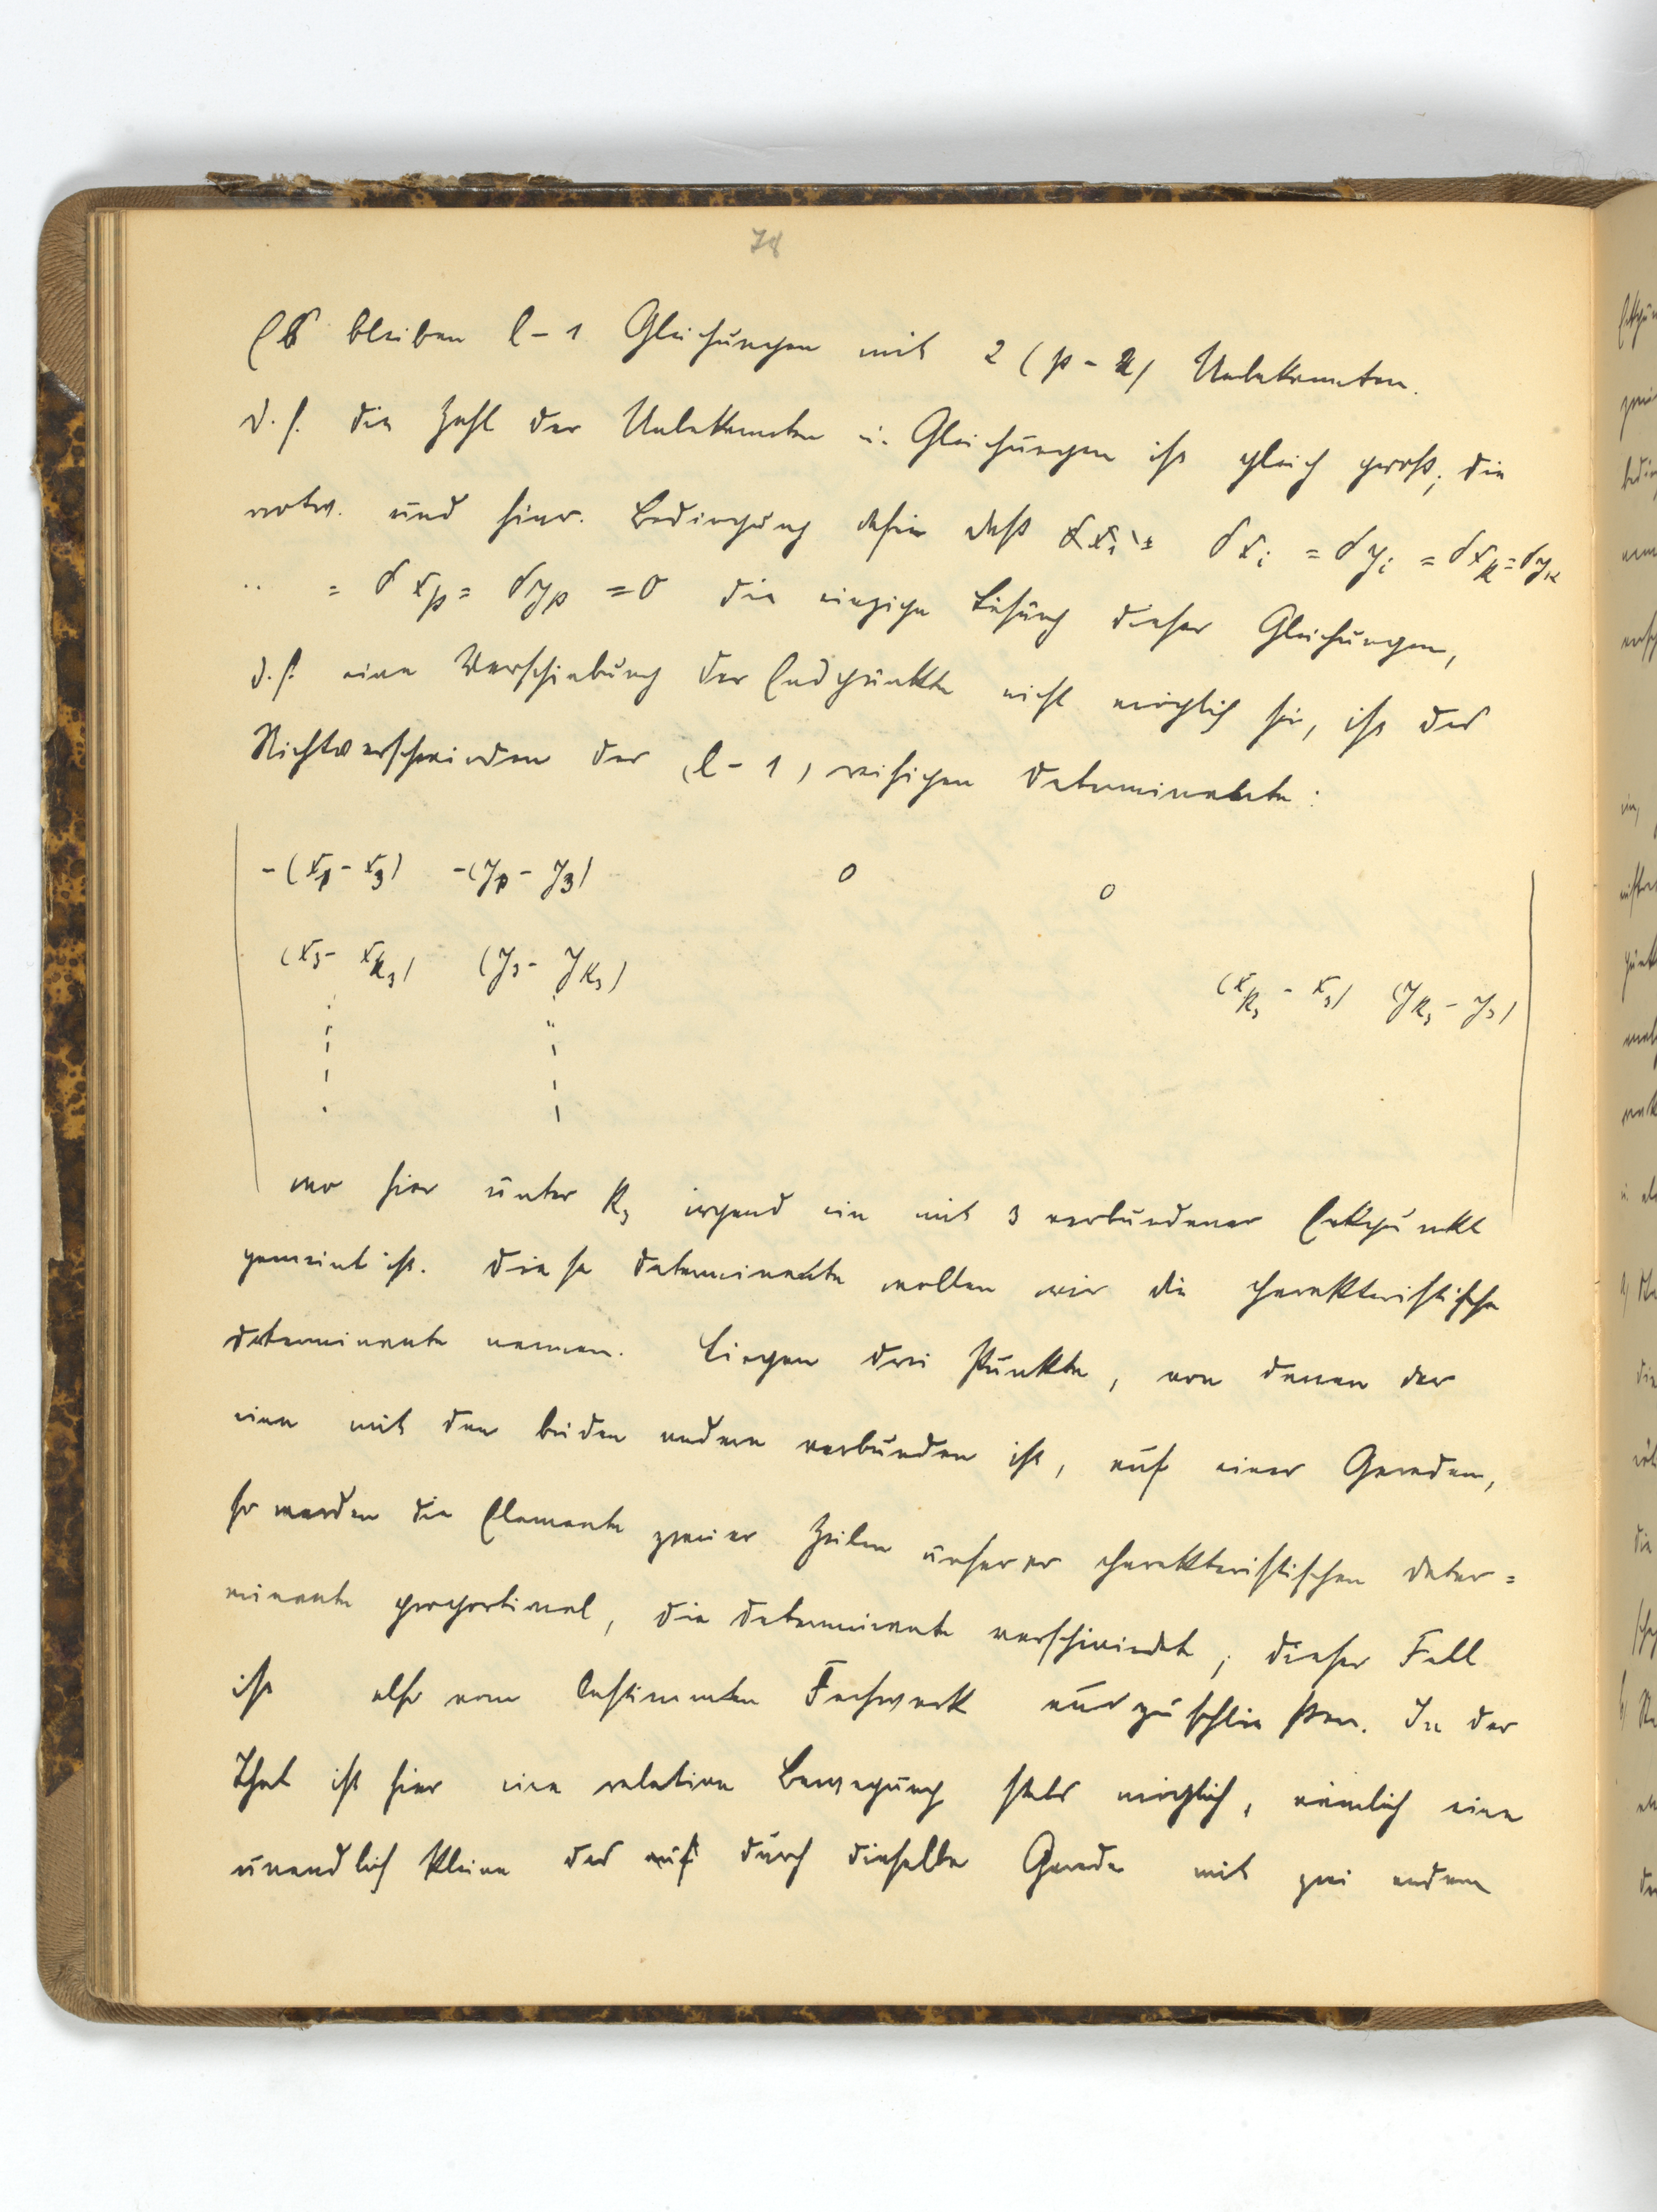 78
Es bleiben l - 1 Gleichungen mit 2 (p - 2) Unbekannten.
d. h. die Zahl der Unbekannten u. Gleichungen ist gleich groß; die
notw. und hinr. Bedingung dafür daß δxi = δyi = δxk = δyk
.. = δxp = δyp = 0 die einzige Lösung dieser Gleichungen,
d. h. eine Verschiebung der Endpunkte nicht möglich sei, ist das
Nichtverschwinden der (l - 1) reihigen Determinante:
-(xp - x3) -(yp - y3) 0 0
(x3 - xk3) (y3 - yk3)
(xk3 - x3) (yk3 - y3)
wo hier unter k3 irgend ein mit 3 verbundener Eckpunkt
gemeint ist. Diese Determinante wollen wir die charakteristische
Determinante nennen. Liegen drei Punkte, von denen der
eine mit den beiden andern verbunden ist, auf einer Geraden,
so werden die Elemente zweier Zeilen unserer charakteristischen Deter=
minante proportional, die Determinante verschwindet; dieser Fall
ist also vom bestimmten Fachwerk auszuschließen. In der
That ist hier eine relative Bewegung stets möglich, nämlich eine
unendlich kleine des durch dieselbe Gerade mit zwei andern